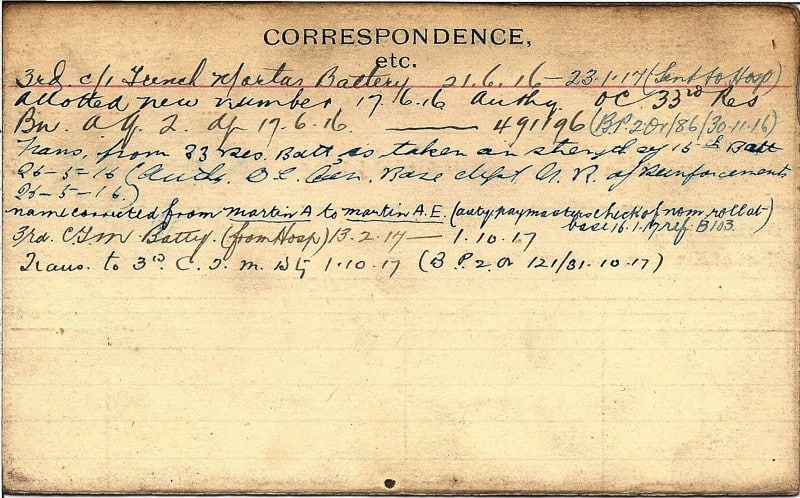 CORRESPONDENCE,
etc.
3rd c/1 Trench Mortar Battery 21.6.16 – 23.1.17 (Sent to Hosp)
Allotted new number 17.6.16 Authy. OC 33rd Res
Bn. of 17.6.16 —— 491196 (B.P. 2 Or/86/30-11-16)
Trans. from 33 Res. Batt as taken on strength of 16th Batt
26-5-16 (Auth. Can. Base dept N.R. of Reinforcements
26-5-16)
name corrected from Martin A to Martin A.E. (auty paymasters check of nom. roll at
base 16.1.17 ref. B103.)
3rd. C T M Batty (from Hosp) 13.2.17 — 1.10.17
Trans. to 3rd C. T. M. Bty 1.10.17 (B.P. 2. Or 121/31.10.17)